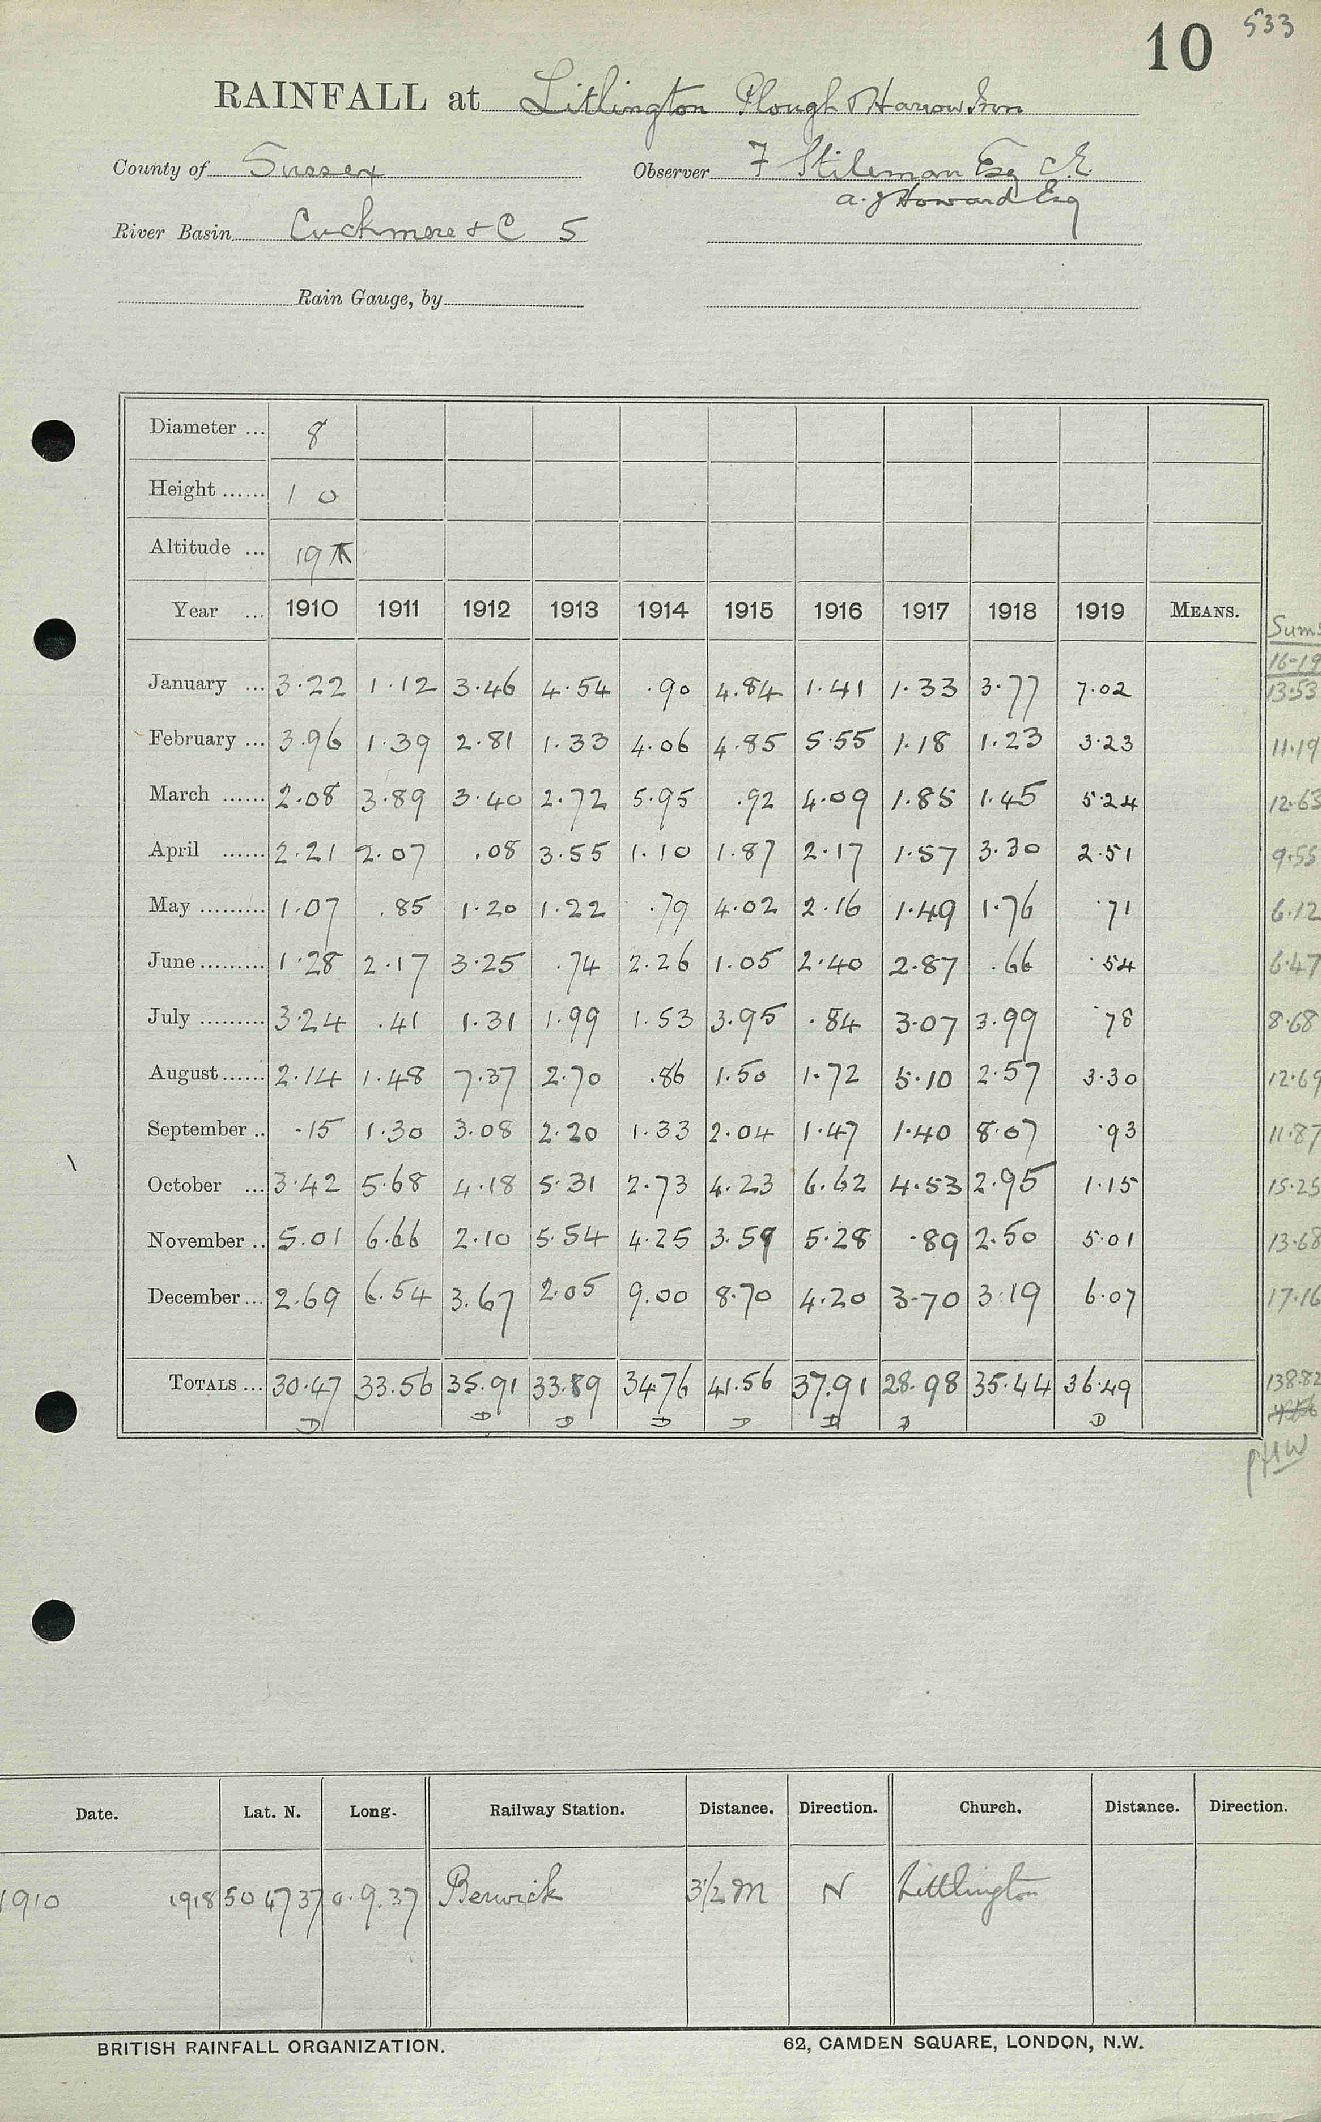 10 533
RAINFALL at Litlington Plough & Harrow Inn
County of Sussex Observer F Stileman Esq C.E.
A. J Howard Esq
River Basin Cuckmere & C 5
Rain Gauge, by
Diameter ... 8
Height ...... 1 0
Altitude ... 19
Year ... 1910 1911 1912 1913 1914 1915 1916 1917 1918 1919 MEANS. Sums
16-19
January ... 3.22 1.12 3.46 4.54 .90 4.84 1.41 1.33 3.77 7.02 13.53
February ... 3.96 1.39 2.81 1.33 4.06 4.85 5.55 1.18 1.23 3.23 11.19
March ...... 2.08 3.89 3.40 2.72 5.95 .92 4.09 1.85 1.45 5.24 12.63
April ...... 2.21 2.07 .08 3.55 1.10 1.87 2.17 1.57 3.30 2.51 9.55
May ......... 1.07 .85 1.20 1.22 .79 4.02 2.16 1.49 1.76 .71 6.12
June ......... 1.28 2.17 3.25 .74 2.26 1.05 2.40 2.87 .66 .54 6.47
July ......... 3.24 .41 1.31 1.99 1.53 3.95 .84 3.07 3.99 .78 8.68
August ...... 2.14 1.48 7.37 2.70 .86 1.50 1.72 5.10 2.57 3.30 12.69
September .. .15 1.30 3.08 2.20 1.33 2.04 1.47 1.40 8.07 .93 11.87
October ... 3.42 5.68 4.18 5.31 2.73 4.23 6.62 4.53 2.95 1.15 15.25
November .. 5.01 6.66 2.10 5.54 4.25 3.59 5.28 .89 2.50 5.01 13.68
December ... 2.69 6.54 3.67 2.05 9.00 8.70 4.20 3.70 3.19 6.07 17.16
TOTALS ... 30.47 33.56 35.91 33.89 34.76 41.56 37.91 28.98 35.44 36.49 138.82
D D D D D D D D
PHW
Date. Lat. N. Long. Railway Station. Distance. Direction. Church. Distance. Direction.
1910 1918 50 47 37 0.9.37 Berwick 3 1/2 M N Littlington
BRITISH RAINFALL ORGANIZATION. 62, CAMDEN SQUARE, LONDON, N.W.